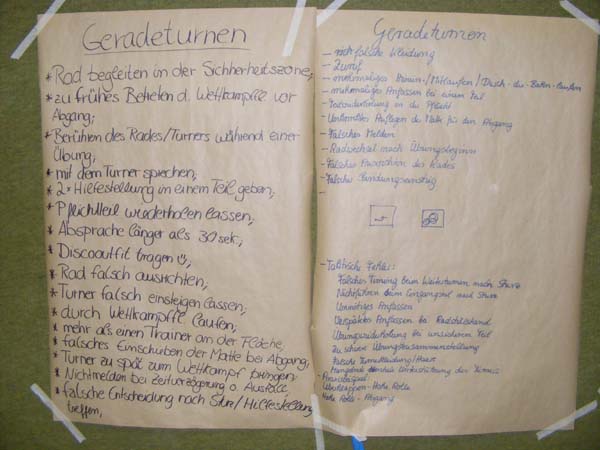 Geradeturnen
* Rad begleiten in der Sichherheitszone,
* zu frühes Betreten d. Wettkampffl. vor
Abgang;
* Berühren des Rades/Turners während einer
Übung;
* mit dem Turner sprechen;
* 2x Hilfestellung in einem Teil geben;
* Pflichtteil wiederholen lassen;
* Absprache länger als 30 sek;
* Discooutfit tragen
* Rad falsch ausrichten;
* Turner falsch einsteigen lassen;
* durch Wettkampffl. laufen;
* mehr als einen Trainer an der Fläche
* falsches Einschuben der Matte bei Abgang;
* Turner zu spät zum Wettkampf bringen
* Nichtmelden bei Zeitverzögerung o. Ausfälle
* falsche Entscheidung nach Sturz/Hilfestellung
treffen,
Geradeturnen
- falsche Kleidung
- Zuruf
- mehrmaliges /Mitlaufen/Durch-die-Bahn-laufen
- mehrmaliges Anfassen bei einem Teil
- in der Pflicht
- Auflegen der Matte für den Abgang
- Falsches Melden
- Radwechsel nach Übungsbeginn
- Falsches Ausrichten des Rades
- Falsche
-
- Taktische Fehler:
Falsches Timing beim Weiterturnen nach Sturz
nach Sturz
Unnötiges Anfassen
Verspätetes Anfassen bei
Übungswiederholung bei unsicherem Teil
Zu schwere Übungszusammenstellung
Falsche Turnkleidung/Haare
Mangelnde des Turners
- Hohe Rolle
Hohe Rolle - Abgang